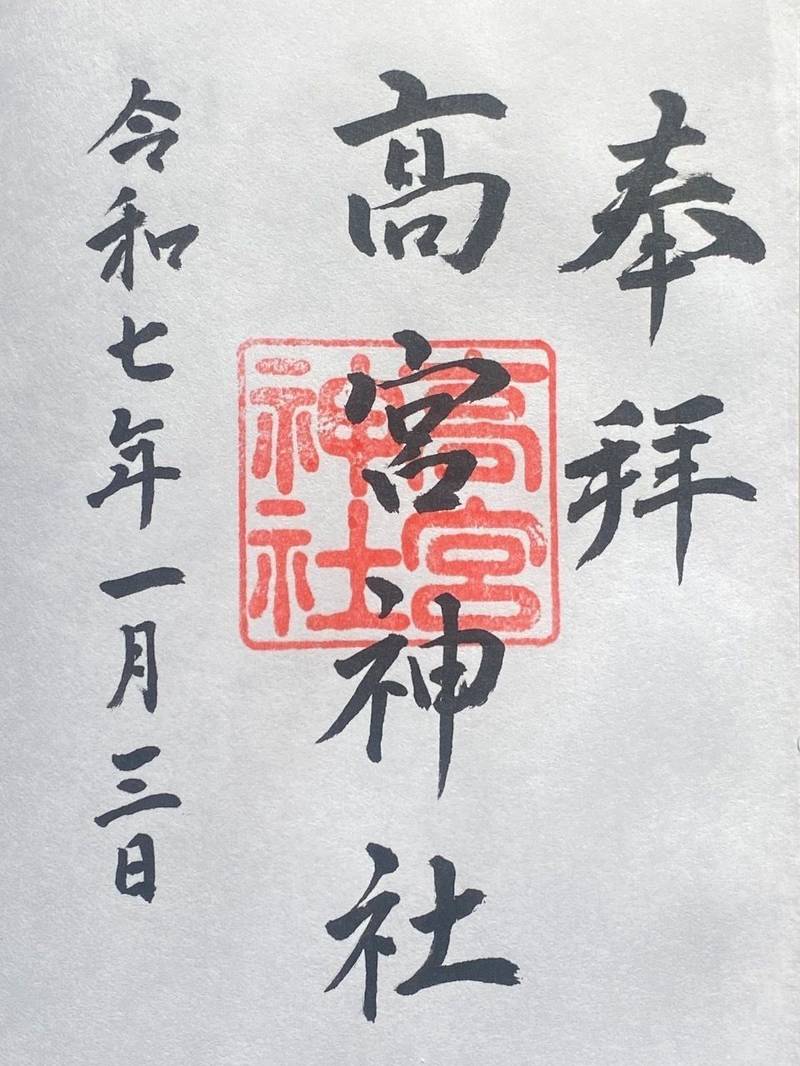 奉拝
高宮神社
高宮
神社
令和七年一月三日